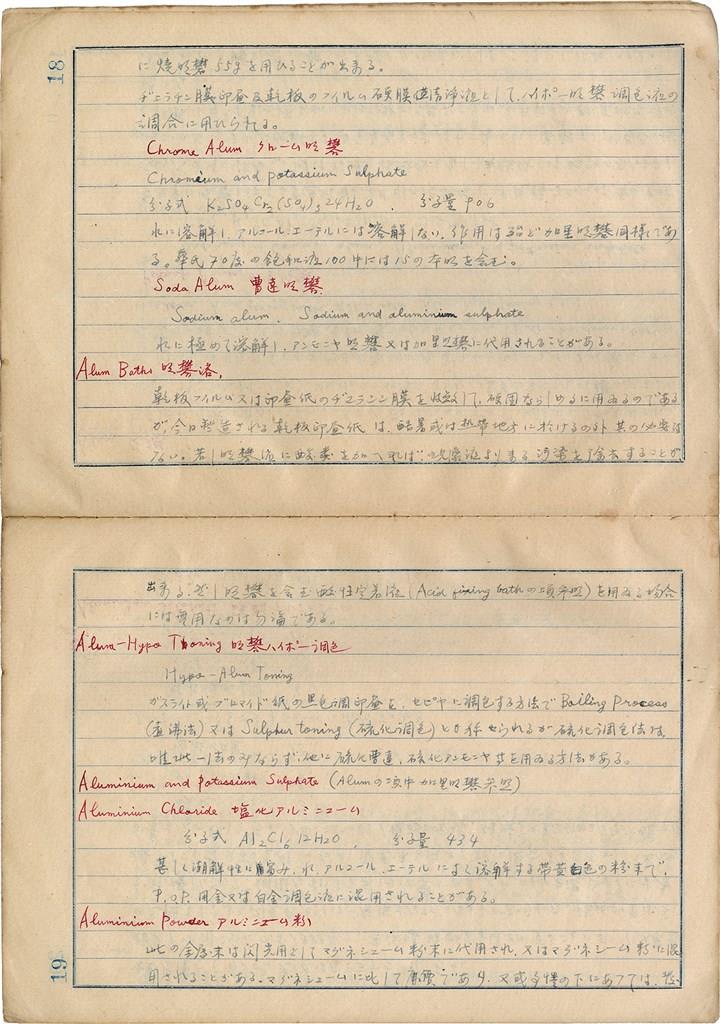 18
に焼明礬55gを用ひることが出来る。
ヂェラチン膜印画及乾板のフィルム硬膜兼清浄液として、ハイポー明礬調色液の
調合に用ひられる。
Chrome Alum クローム明礬
Chromium and potassium Sulphate
分子式 K2SO4Cr2(SO4)3 24H2O . 分子量 906
水に溶解し、アルコール、エーテルには溶解しない。作用は殆ど加里明礬同様であ
る。華氏70度の飽和液100中には15の本明を含む。
Soda Alum 曹達明礬
Sodium alum. Sodium and aluminium sulphate
水に極めて溶解し、アンモニヤ明礬又は加里明礬に代用されることがある。
Alum Baths 明礬浴。
乾板フィルム又は印画紙のヂェラチン膜を収斂して、硬固ならしめるに用ゐるのである
が、今日製造される乾板印画紙は、酷暑或は熱帯地方に於けるの外其の必要は
ない。若し明礬浴に酸類を加へれば、現像液よりする汚染を除去することが
出来る。然し明礬を含む酸性定着液(Acid fixing bathの項参照)を用ゐる場合
には無用なのは勿論である。
Alum-Hypo Thoning 明礬ハイポー調色
Hypo-Alum Toning
ガスライト或ブロマイド紙の黒色調印画を、セピヤに調色する方法で Boiling Process
(煮沸法)又は Sulphur toning (硫化調色)とか称せられるが硫化調色法は、
唯此一法のみならず、他に硫化曹達、硫化アンモニヤ等を用ゐる方法がある。
Aluminium and Potassium Sulphate (Alumの項中加里明礬参照)
Aluminium Chloride 塩化アルミニューム
分子式 Al2Cl6 12H2O , 分子量 434
甚しく潮解性に富み、水、アルコール、エーテルによく溶解する帯黄白色の粉末で、
P.O.P.用金又は白金調色液に混用されることがある。
Aluminium Powder アルミニューム粉
此の金属末は閃光用としてマグネシューム粉末に代用され、又はマグネシーム粉に混
用されることがある。マグネシュームに比して廉價であり、又或る種の下にあつては、
19